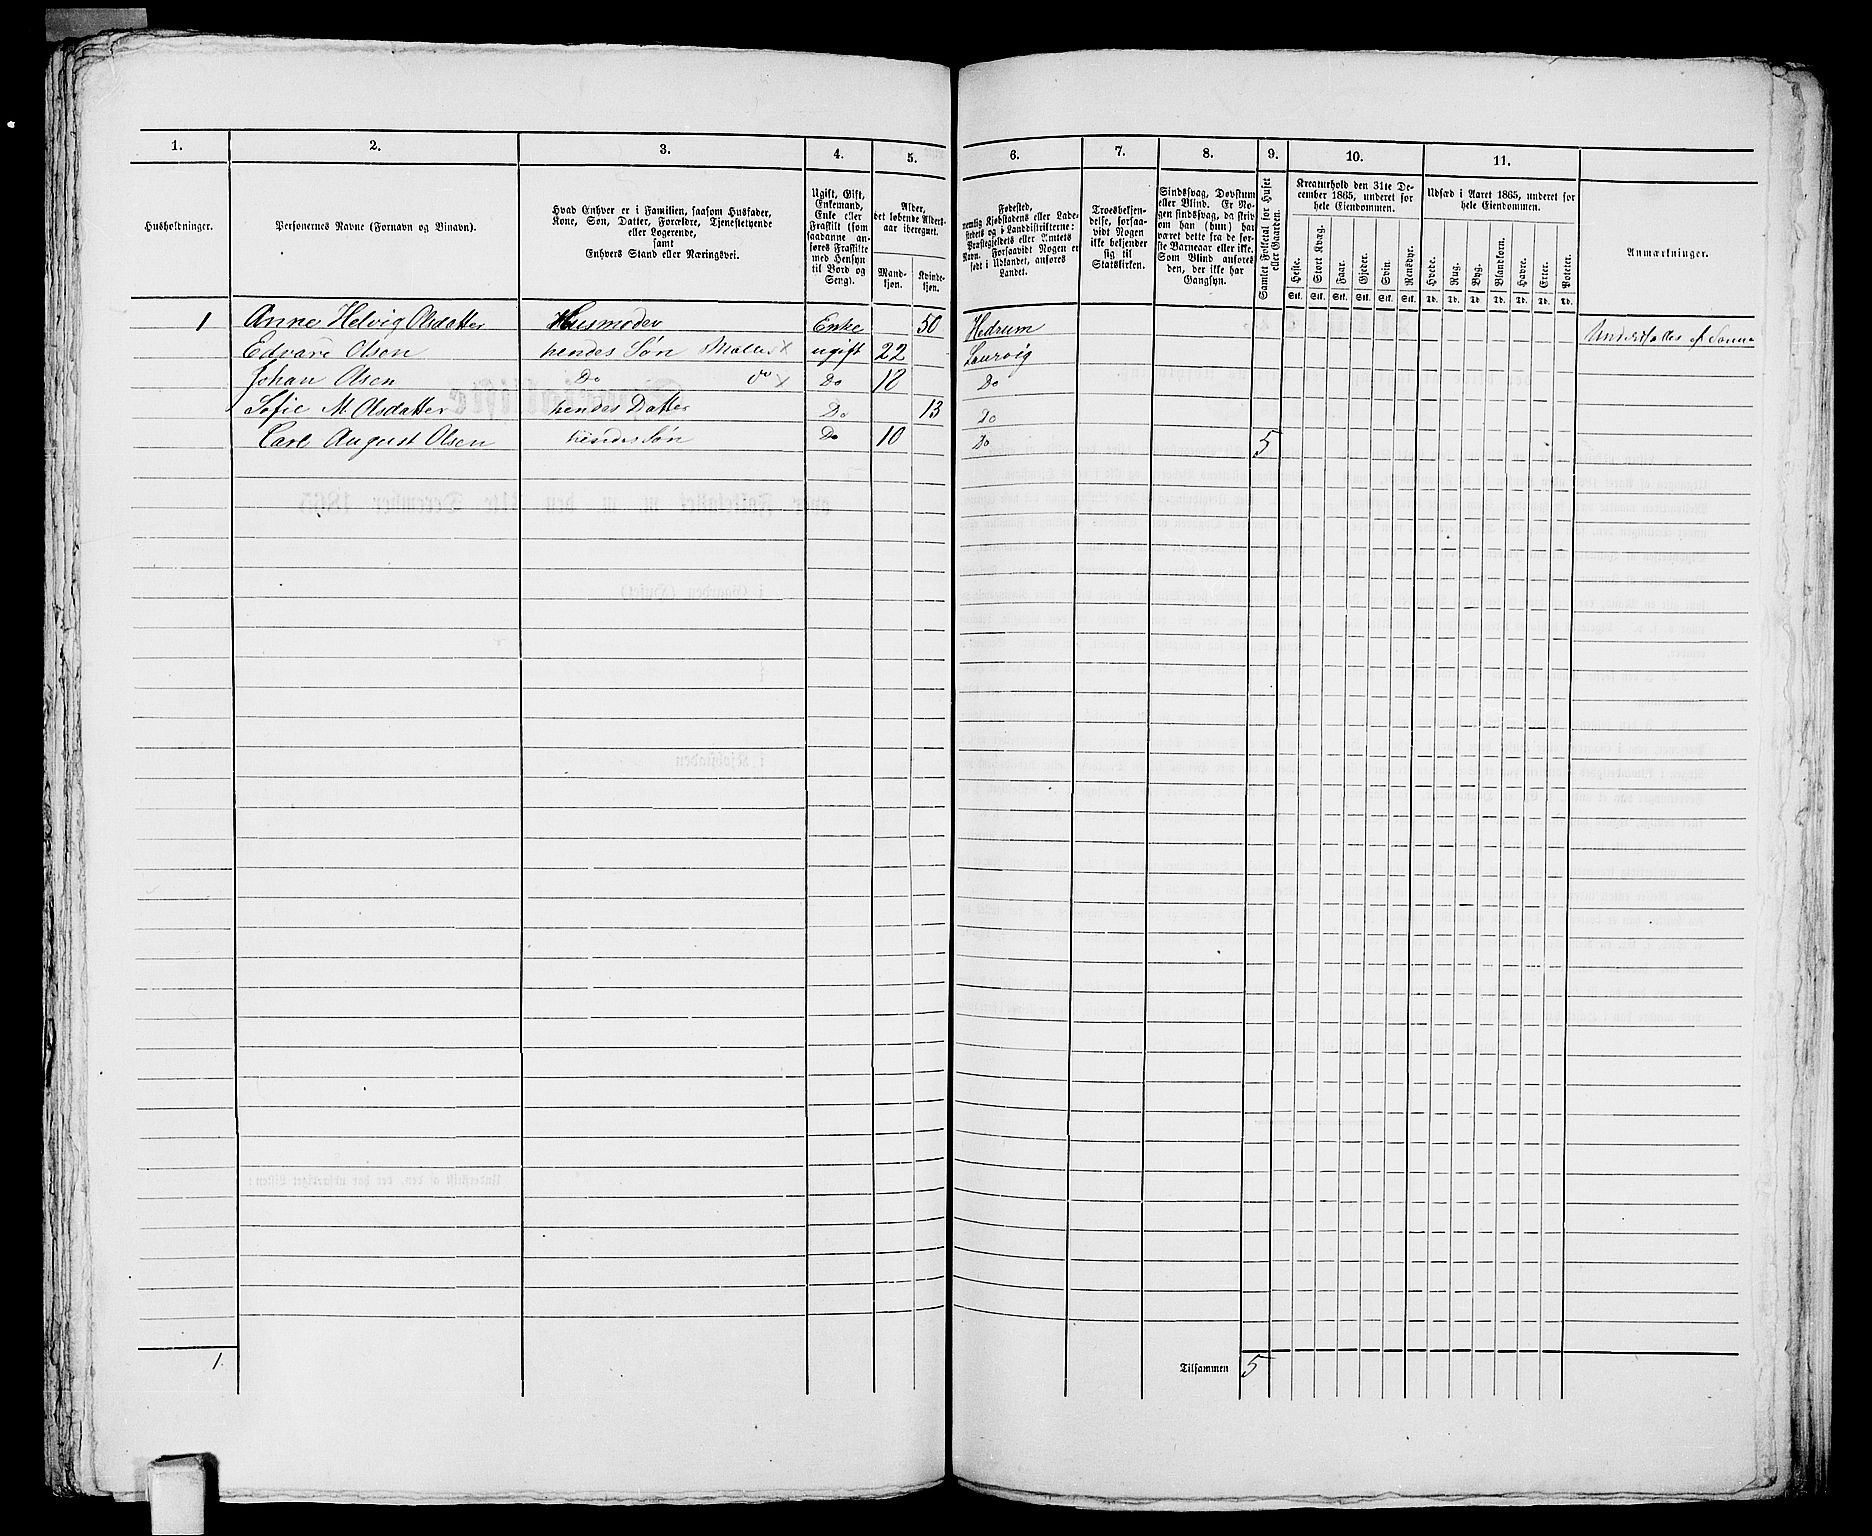 1. 2. 3. 4. 5. 6. 7. 8. 9. 10. 11.
Husholdninger.
Personernes Navne (Fornavn og Binavn).
Hvad Enhver er i Familien, saasom Husfader,
Kone, Søn, Datter, Forældre, Tjenestetyende
eller Logerende,
samt
Enhvers Stand eller Næringsvei.
Ugift, Gift,
Enkemand,
Enke eller
Fraskilt (som
saadanne an-
føres Fraskilte
med Hensyn
til Bord og
Seng).
Alder,
det løbende Alders-
aar iberegnet.
Mand-
kjøn.
Kvinde-
kjøn.
Fødested,
nemlig Kjøbstadens eller Lade-
stedets og i Landdistrikterne:
Præstegjeldets eller Amtets
Navn. Forsaavidt Nogen er
født i Udlandet, anføres
Landet.
Troesbekjen-
delse, forsaa-
vidt Nogen
ikke bekjender
sig til
Statskirken.
Sindssvag, Døvstum
eller Blind. Er No-
gen sindssvag, da skriv
om han (hun) har
været dette fra de før-
ste Barneaar eller ikke.
Som Blind anføres
den, der ikke har
Gangsyn.
Samlet Folketal for Huset
eller Gaarden.
Kreaturhold den 31te De-
cember 1865, underet for
hele Eiendommen.
Heste. Stort Kvæg. Faar. Gjeder. Svin. Rensdyr.
Stk. Stk. Stk. Stk. Stk. Stk.
Udsæd i Aaret 1865, underet for
hele Eiendommen.
Hvede. Rug. Byg. Blandkorn. Havre. Erter. Poteter.
Td. Td. Td. Td. Td. Td. Td.
Anmærkninger.
1 Anne Helvig Olsdatter Husmoder Enke 50 Hedrum Underholdes af Sønne
Edvard Olsen hendes Søn ugift 22 Laurvig
Johan Olsen Do do Do 18 Do
Sofie M. Olsdatter hendes Datter Do 13 Do
Carl August Olsen hendes Søn Do 10 Do 5
1. Tilsammen 5